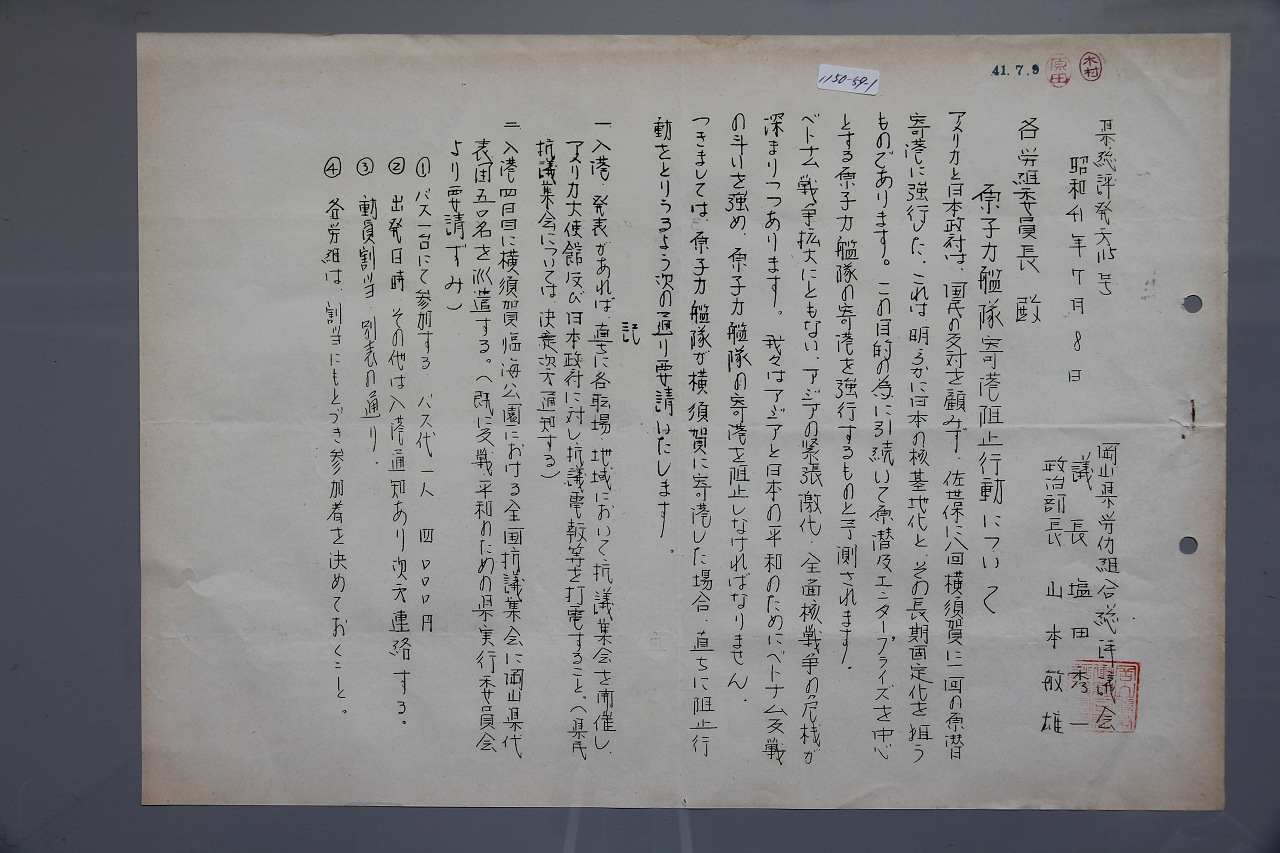 1150-59-1
41.7.9
原田
木村
県総評発第115号
昭和41年7月8日
岡山県労仂組合総評議会
議長 塩田秀一
政治部長 山本敏雄
各労組委員長 殿
原子力艦隊寄港阻止行動について
アメリカと日本政府は、国民の反対を顧みず、佐世保に八回横須賀に二回の原潜
寄港に強行した、これは明らかに日本の核基地化と、その長期固定化を狙う
ものであります。この目的の為に引続いて原潜及エンタープライズを中心
とする原子力艦隊の寄港を強行するものと予測されます。
ベトナム戦争拡大にともない、アジアの緊張激化、全面核戦争の危機が
深まりつつあります。我々はアジアと日本の平和のためにベトナム反戦
の斗いを強め、原子力艦隊の寄港を阻止しなければなりません。
つきましては、原子力艦隊が横須賀に寄港した場合、直ちに阻止行
動をとりうるよう次の通り要請いたします。
記
一、入港、発表があれば、直ちに各職場、地域において抗議集会を開催し、
アメリカ大使館及び日本政府に対し抗議電報等を打電すること、(県民
抗議集会については、決定次第通知する)
二、入港四日目に横須賀臨海公園における全国抗議集会に岡山県代
表団五〇名を派遣する。(既に反戦平和のための県実行委員会
より要請ずみ)
① バス一台にて参加する バス代一人 四〇〇〇円
② 出発日時、その他は入港通知あり次第連絡する。
③ 動員割当 別表の通り.
④ 各労組は、割当にもとづき参加者を決めておくこと。